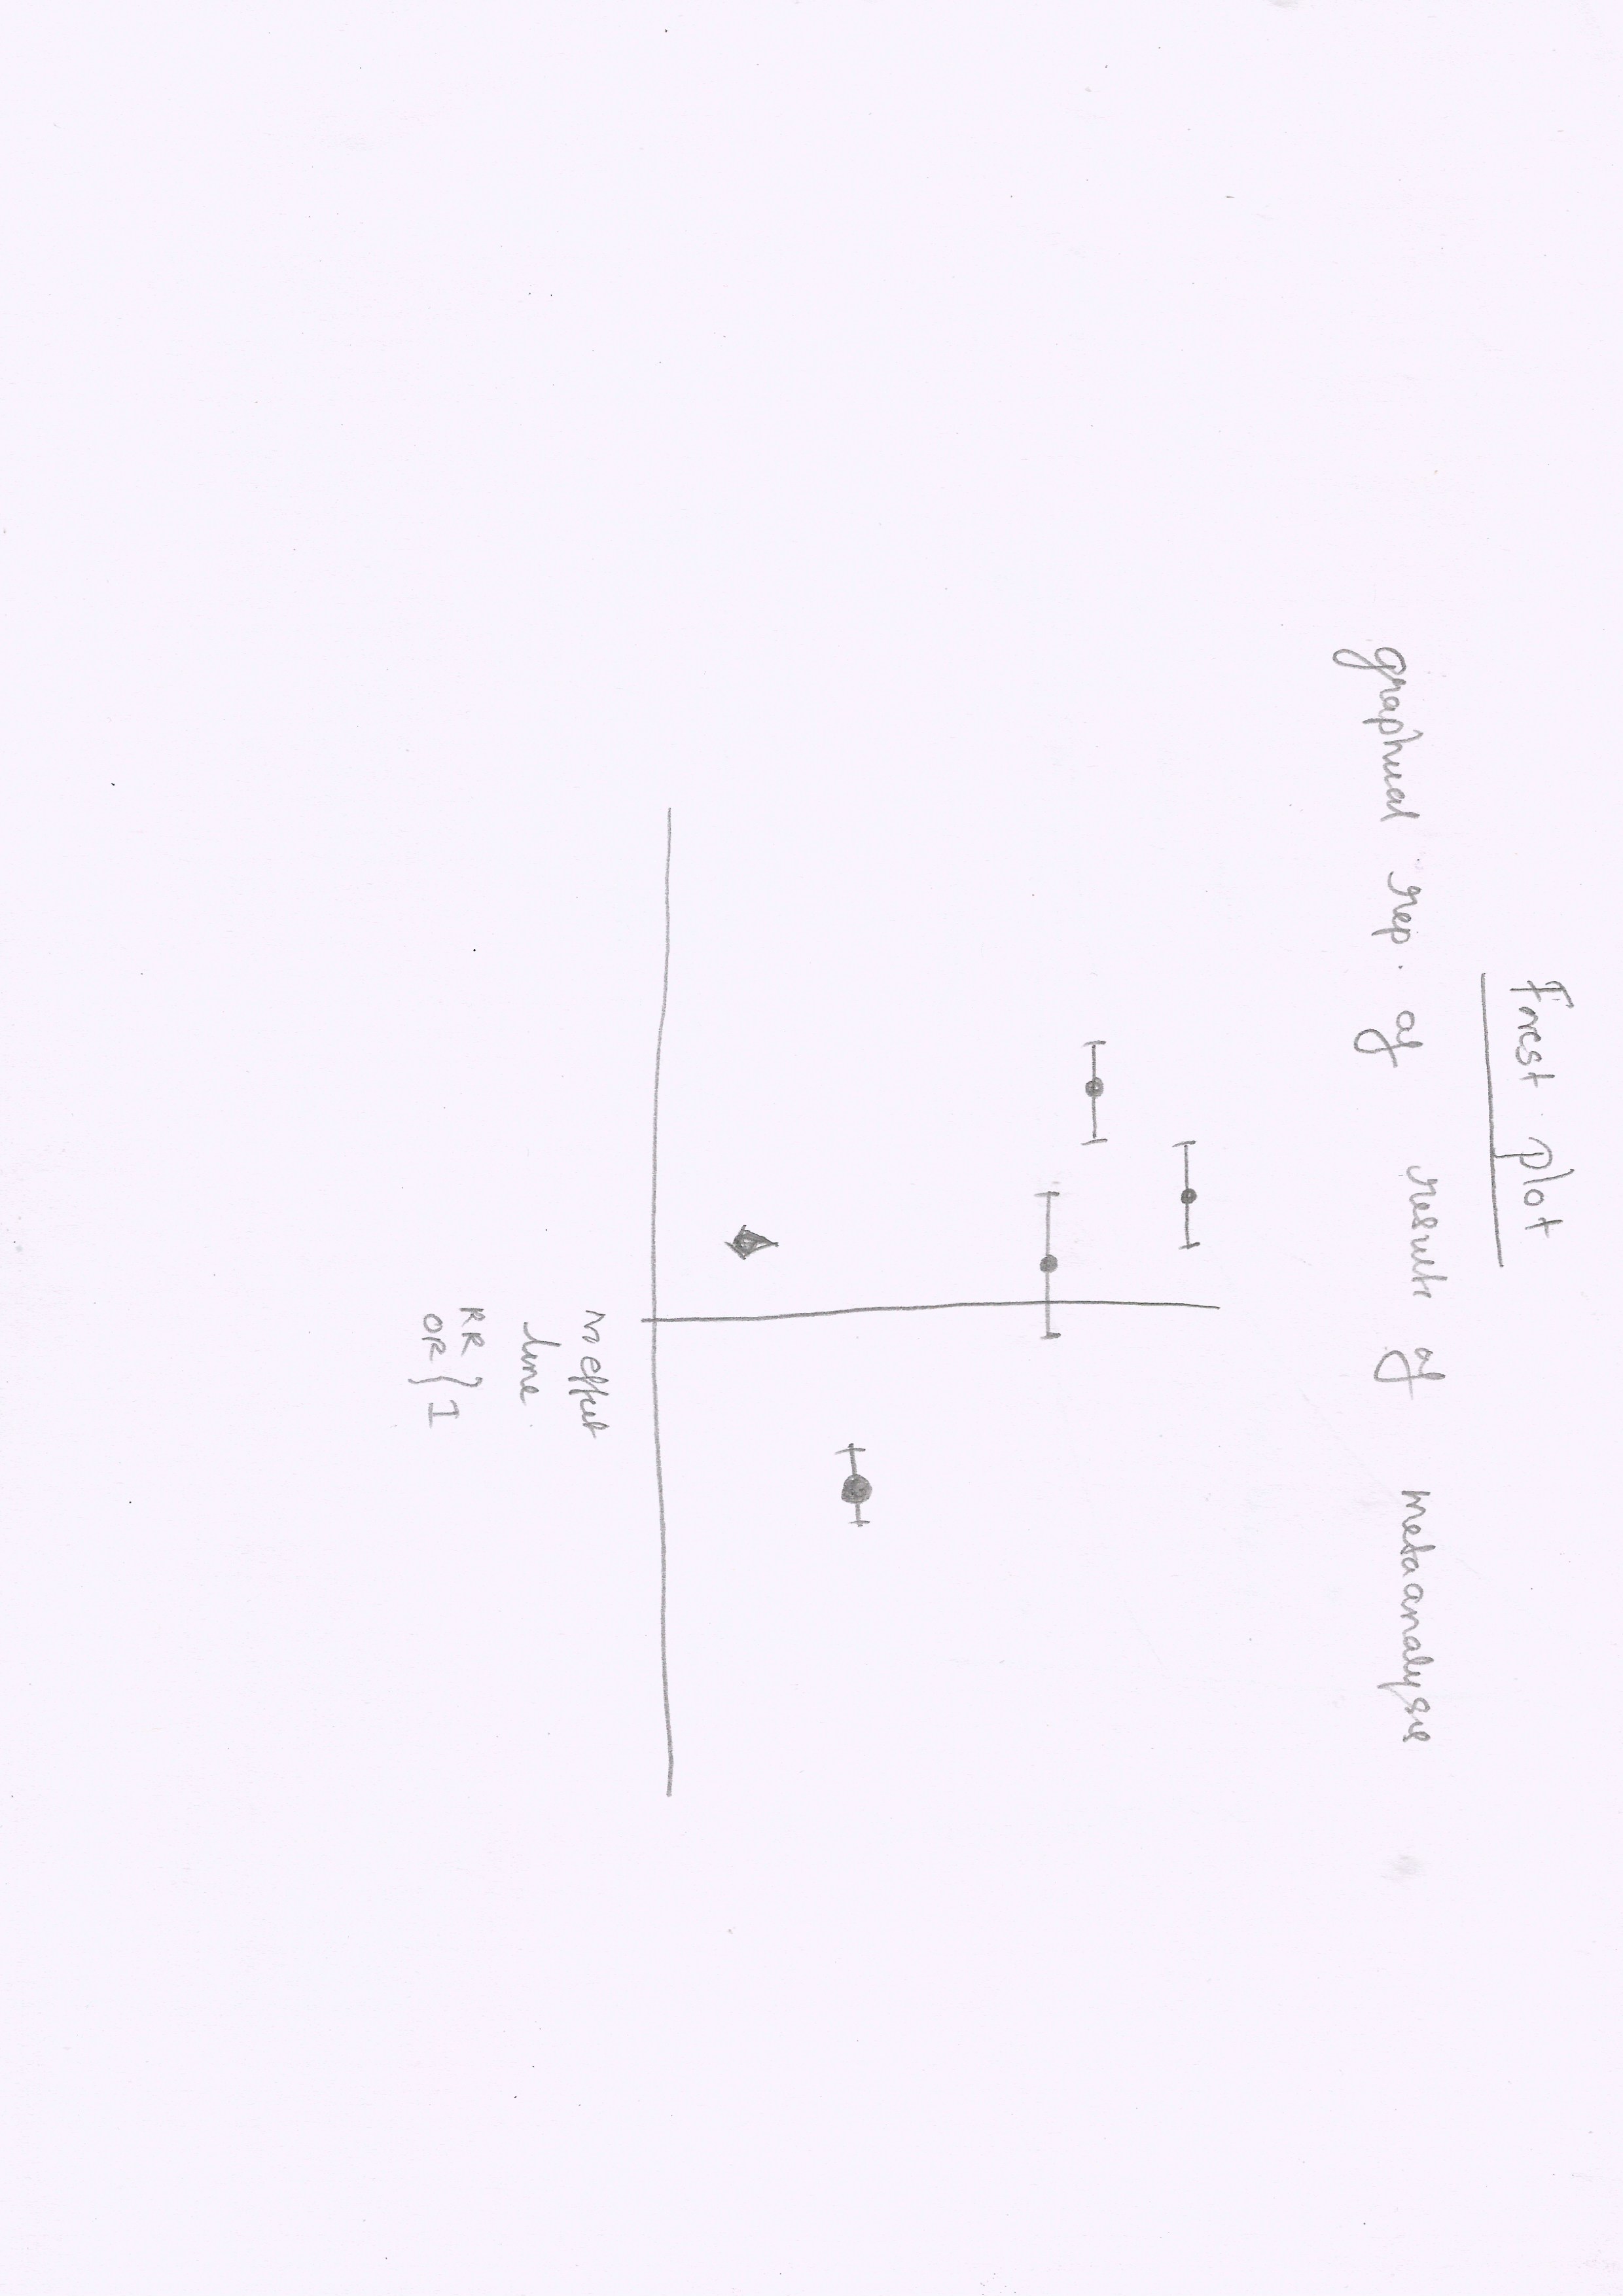 Forest plot
graphical rep. of results of metaanalysis
No effect
line
RR
OR } 1